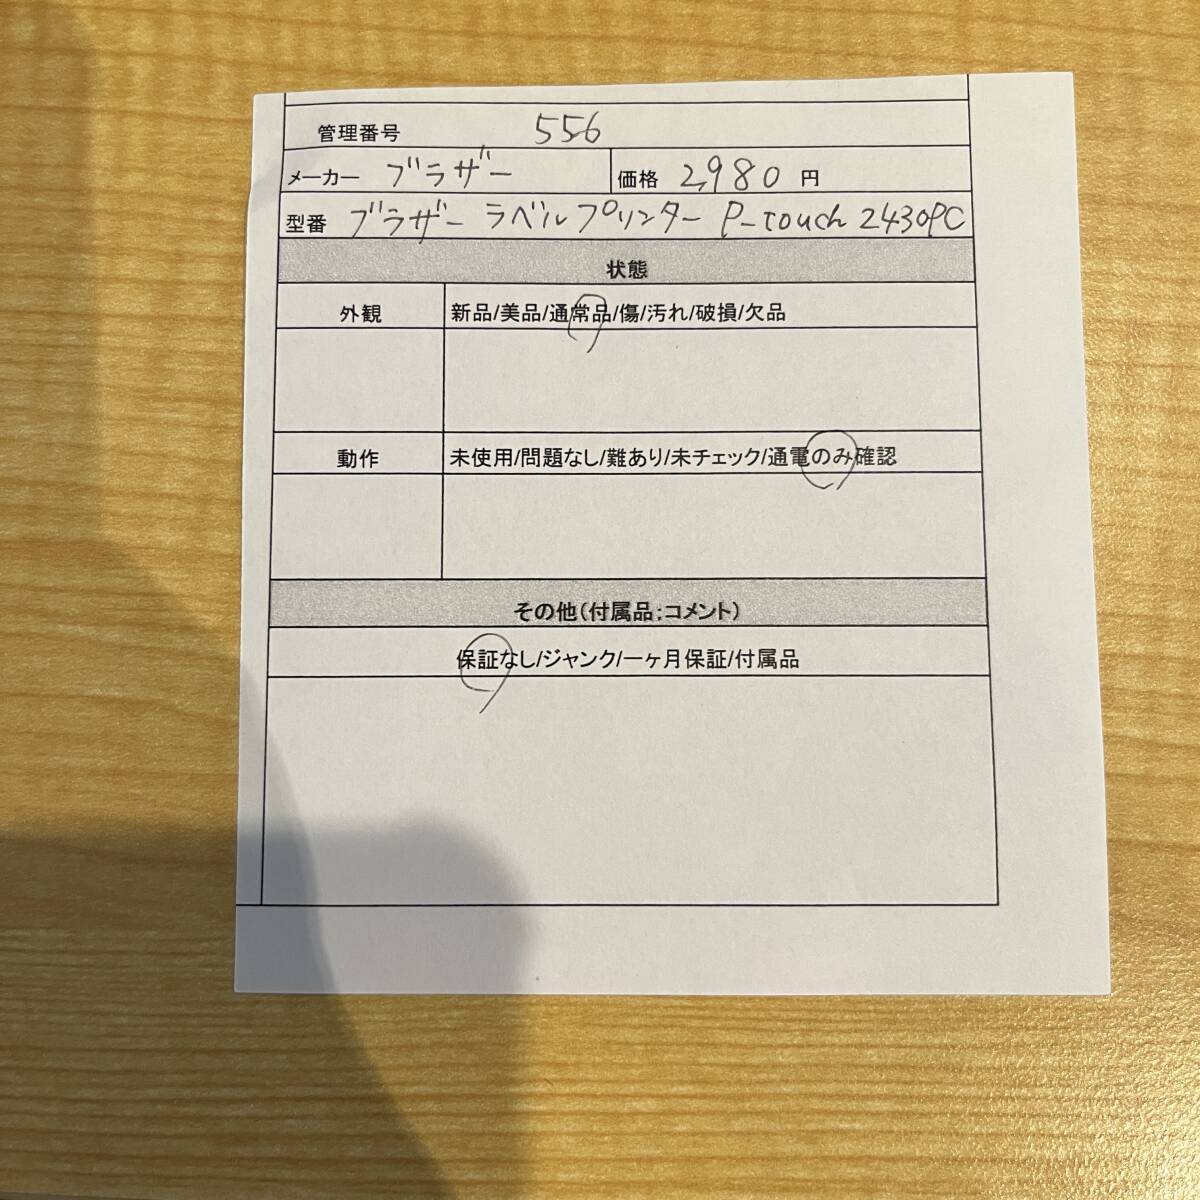 管理番号 556
メーカー ブラザー 価格 2,980 円
型番 ブラザー ラベルプリンター P-touch 2430PC
状態
外観 新品/美品/通常品/傷/汚れ/破損/欠品
動作 未使用/問題なし/難あり/未チェック/通電のみ確認
その他(付属品;コメント)
保証なし/ジャンク/一ヶ月保証/付属品